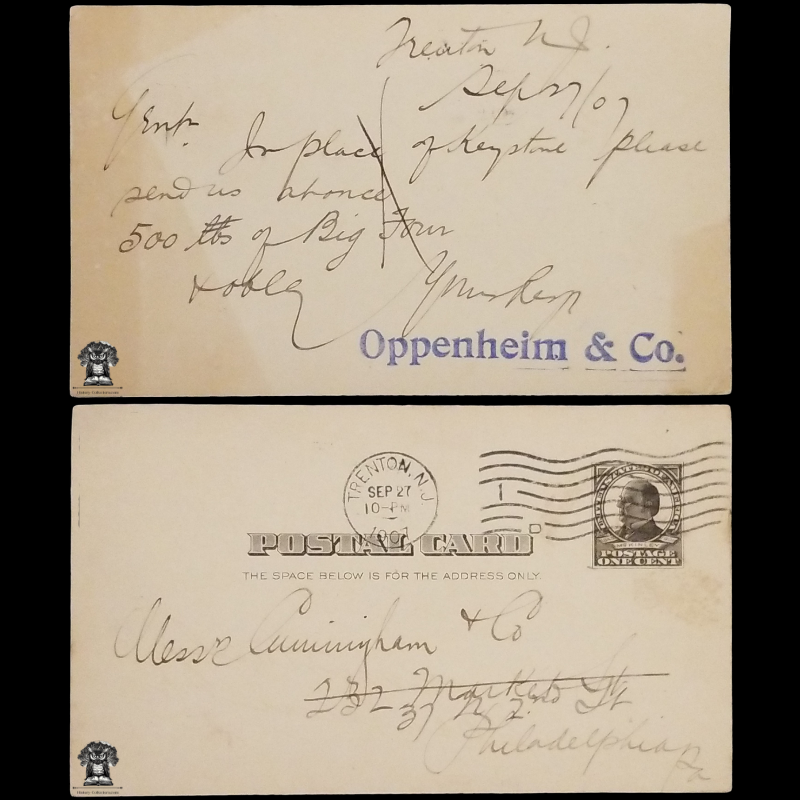 Trenton N.J.
Sep 27/07
Gent.
In place of Keystone please
send us at once
500 lbs of Big Four
& oblg
Yours Resp
Oppenheim & Co.
TRENTON, N.J.
SEP 27
10-PM
1907
1
POSTAL CARD
THE SPACE BELOW IS FOR THE ADDRESS ONLY.
UNITED STATES OF AMERICA
McKINLEY
POSTAGE
ONE CENT
Messrs Cunningham & Co
232 Market St
37 N 2nd St
Philadelphia Pa